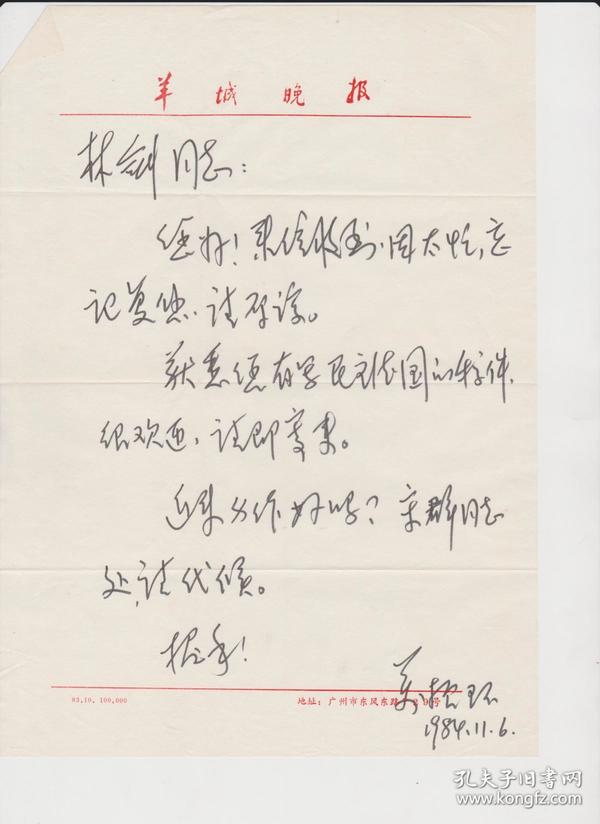 羊城晚报
林剑同志：
您好！来信收到，因太忙，忘
记复您，请原谅。
获悉您有写民主德国的特件，
很欢迎，请即寄来。
近来工作好吗？宋群同志
处，请代候。
握手！
万振环
1984.11.6.
83.10. 100,000
地址：广州市东风东路 号
孔夫子旧书网
www.kongfz.com